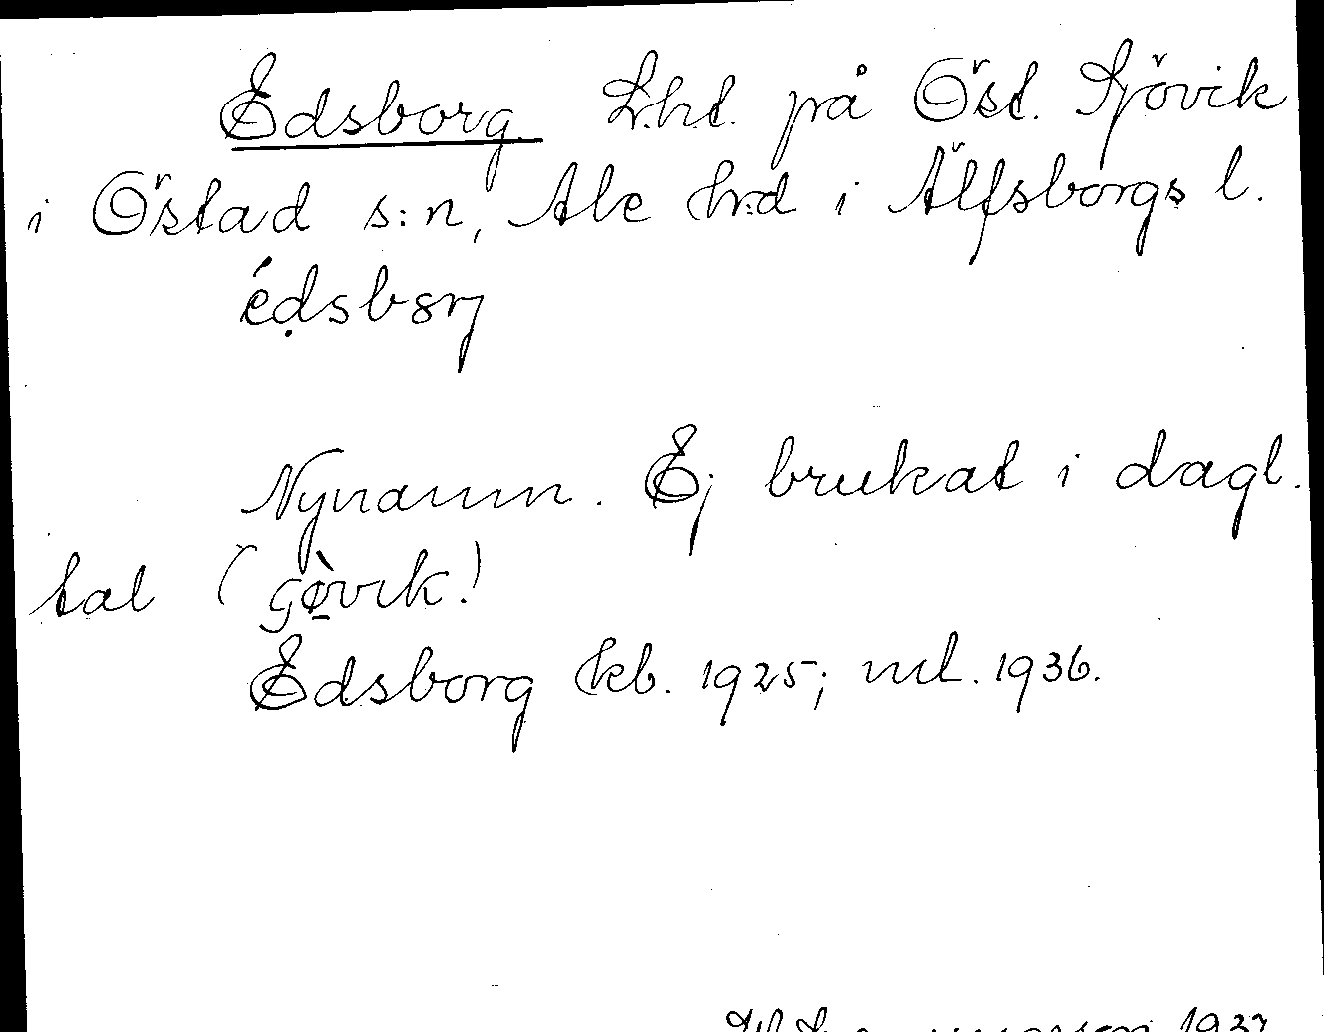 Edsborg Lht. på Öst. Sjövik
i Östad s:n, Ale hrd i Älfsborgs l.
Nynamn. Ej brukat i dagl.
tal
Edsborg kb. 1925; ml. 1936.
1937